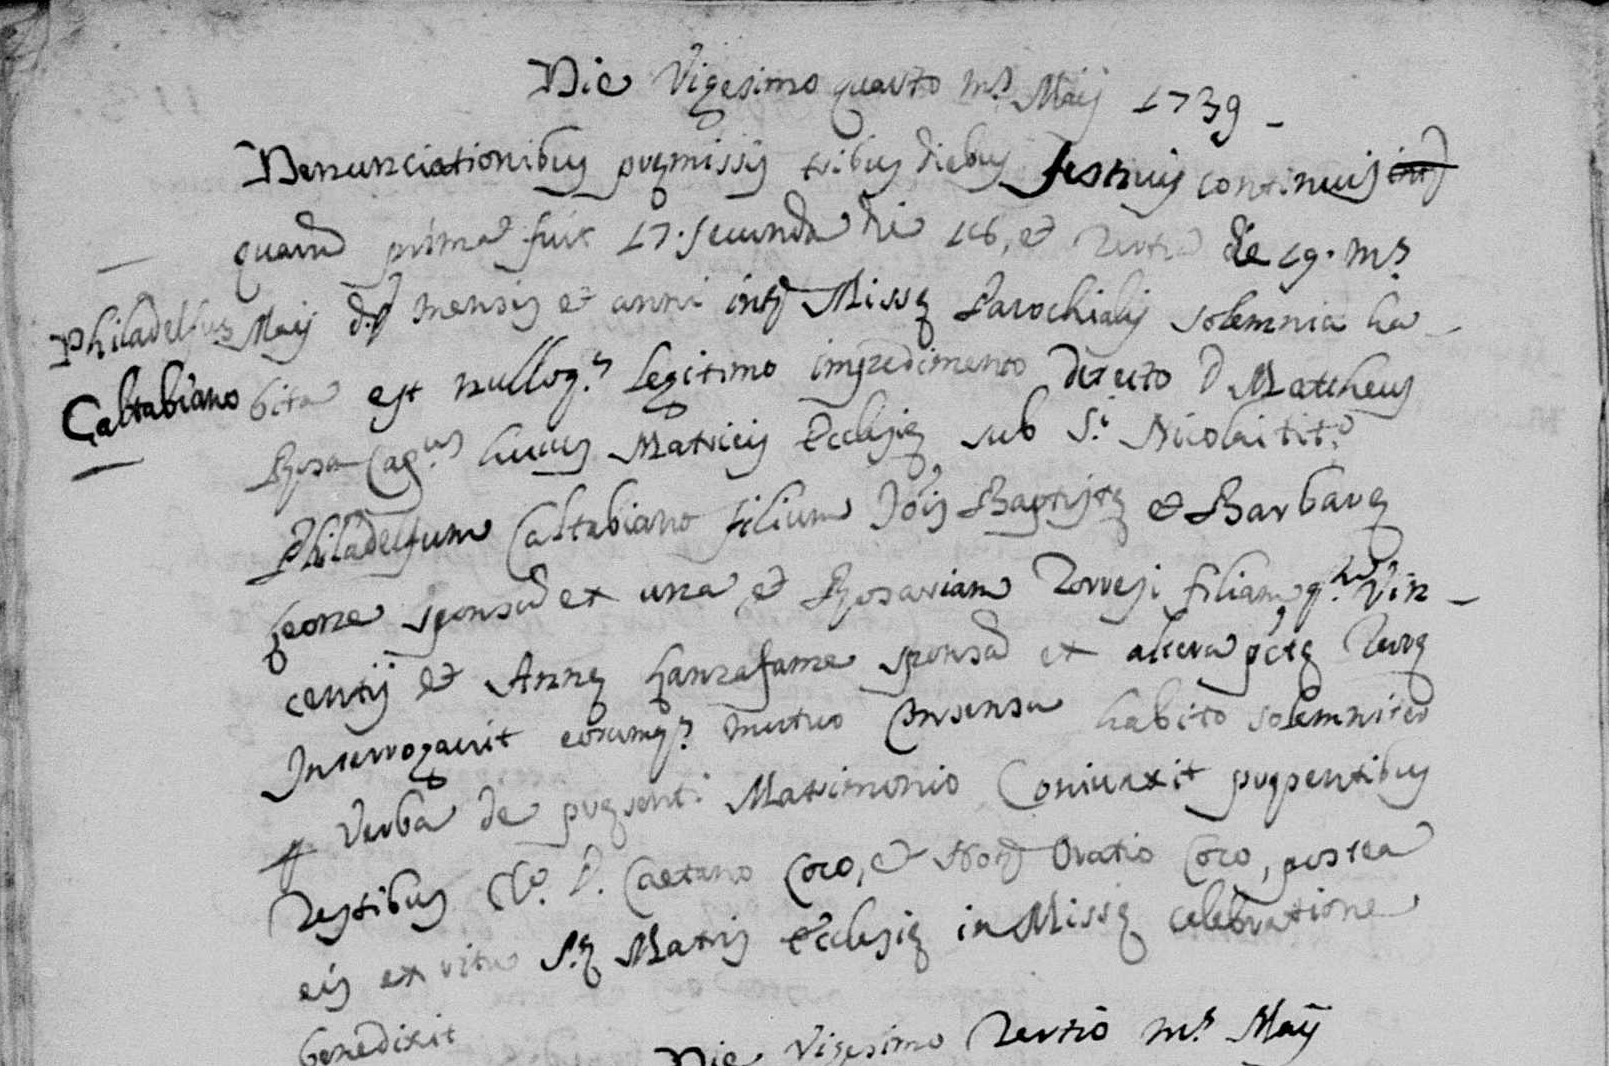 Die Vigesimo quarto m.s Maij 1739
Denunciationibus pręmissis tribus diebus festivis continuis
quarũ prima fuit 17. secunda die 18, et tertia die 19. m.s
Philadelfus Maij mensis et anni Missę Parochialis solemnia ha-
Caltabiano bita est nulloq.e legitimo impedimento detecto D. Mattheus
Rosa Cap.nus huius Matricis Ecclesię sub S.i Nicolai tit.o
Philadelfum Caltabiano filium Jõis Baptistę et Barbarę
Leone sponsũ ex una et Rosariam Torrisi filiam q.m Vin-
centij et Annę Lanzafame sponsã ex altera
Interrogavit eorumq.e mutuo Consensu habito solemniter
Verba de pręsenti Matrimonio Coniunxit pręsentibus
Testibus Cl.o D. Caetano Coco, et Oratio Coco, postea
eis ex ritu S.ę Matris Ecclesię in Missę celebratione
benedixit
Die Vigesimo Tertio m.s Maij